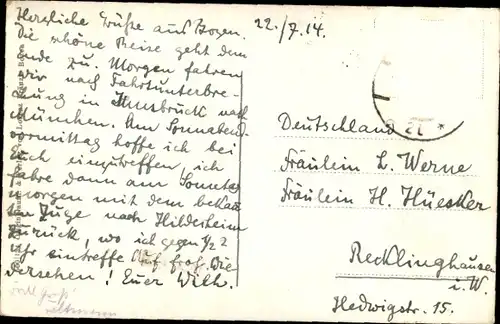 Herzliche Grüße aus Bozen.
Die schöne Reise geht dem
Ende zu. Morgen fahren
wir nach Fahrtunterbre-
chung in Innsbruck nach
München. Am Sonnabend-
vormittag hoffe ich bei
Euch einzutreffen, ich
fahre dann am Sonntag
morgen mit dem bekann
ten Zuge nach Hildesheim
zurück, wo ich gegen 1/2 2
Uhr eintreffe. Auf froh. Wie
dersehen! Euer Wilh.
22./7.14.
Deutschland
Fräulein L. Werne
Fräulein H. Hüesker
Recklinghausen
i. W.
Hedwigstr. 15.